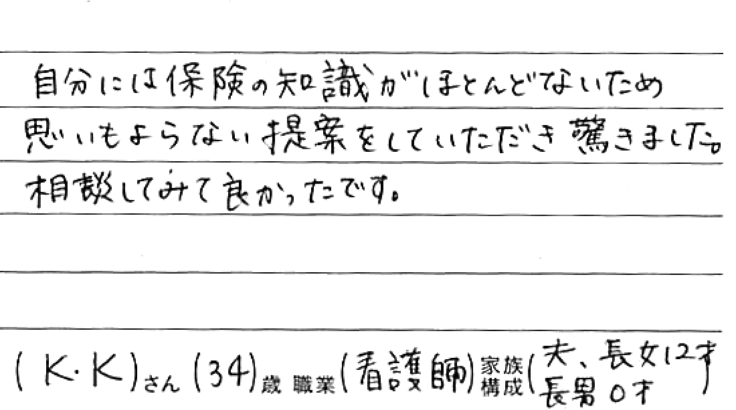 自分には保険の知識がほとんどないため
思いもよらない提案をしていただき驚きました。
相談してみて良かったです。
(K・K)さん(34)歳 職業(看護師)家族構成(夫、長女12才
長男0才)